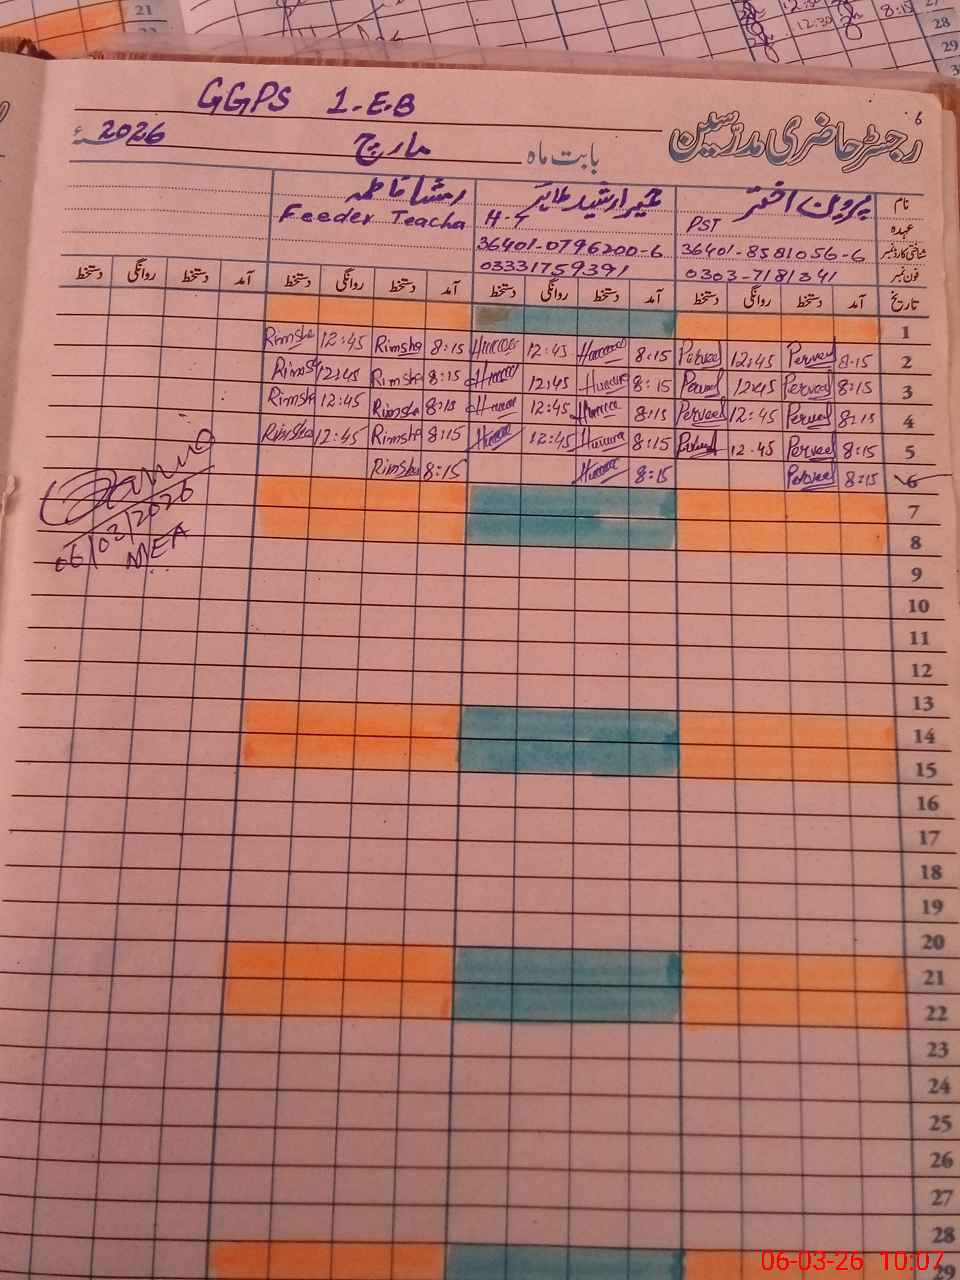 GGPS 1-E.B
رجسٹر حاضری مدرسین
6
بابت ماہ مارچ 2026ء
نام پروین اختر
عہدہ PST H-T Feeder Teacha
شناختی کارڈ نمبر 36401-8581056-6 36401-0796200-6
فون نمبر 0303-7181341 03331759391
تاریخ آمد دستخط روانگی دستخط آمد دستخط روانگی دستخط آمد دستخط روانگی دستخط آمد دستخط روانگی دستخط
1
2 8:15 Perveel 12:45 Perveel 8:15 Humera 12:45 Humera 8:15 Rimsha 12:45 Rimsha
3 8:15 Perveel 12:45 Perveel 8:15 Humera 12:45 Humera 8:15 Rimsha 12:45 Rimsha
4 8:15 Perveel 12:45 Perveel 8:15 Humera 12:45 Humera 8:15 Rimsha 12:45 Rimsha
5 8:15 Perveel 12:45 Perveel 8:15 Humera 12:45 Humera 8:15 Rimsha 12:45 Rimsha
6 8:15 Perveel 8:15 Humera 8:15 Rimsha
06/03/2026
MEA
7
8
9
10
11
12
13
14
15
16
17
18
19
20
21
22
23
24
25
26
27
28
29
06-03-26 10:07